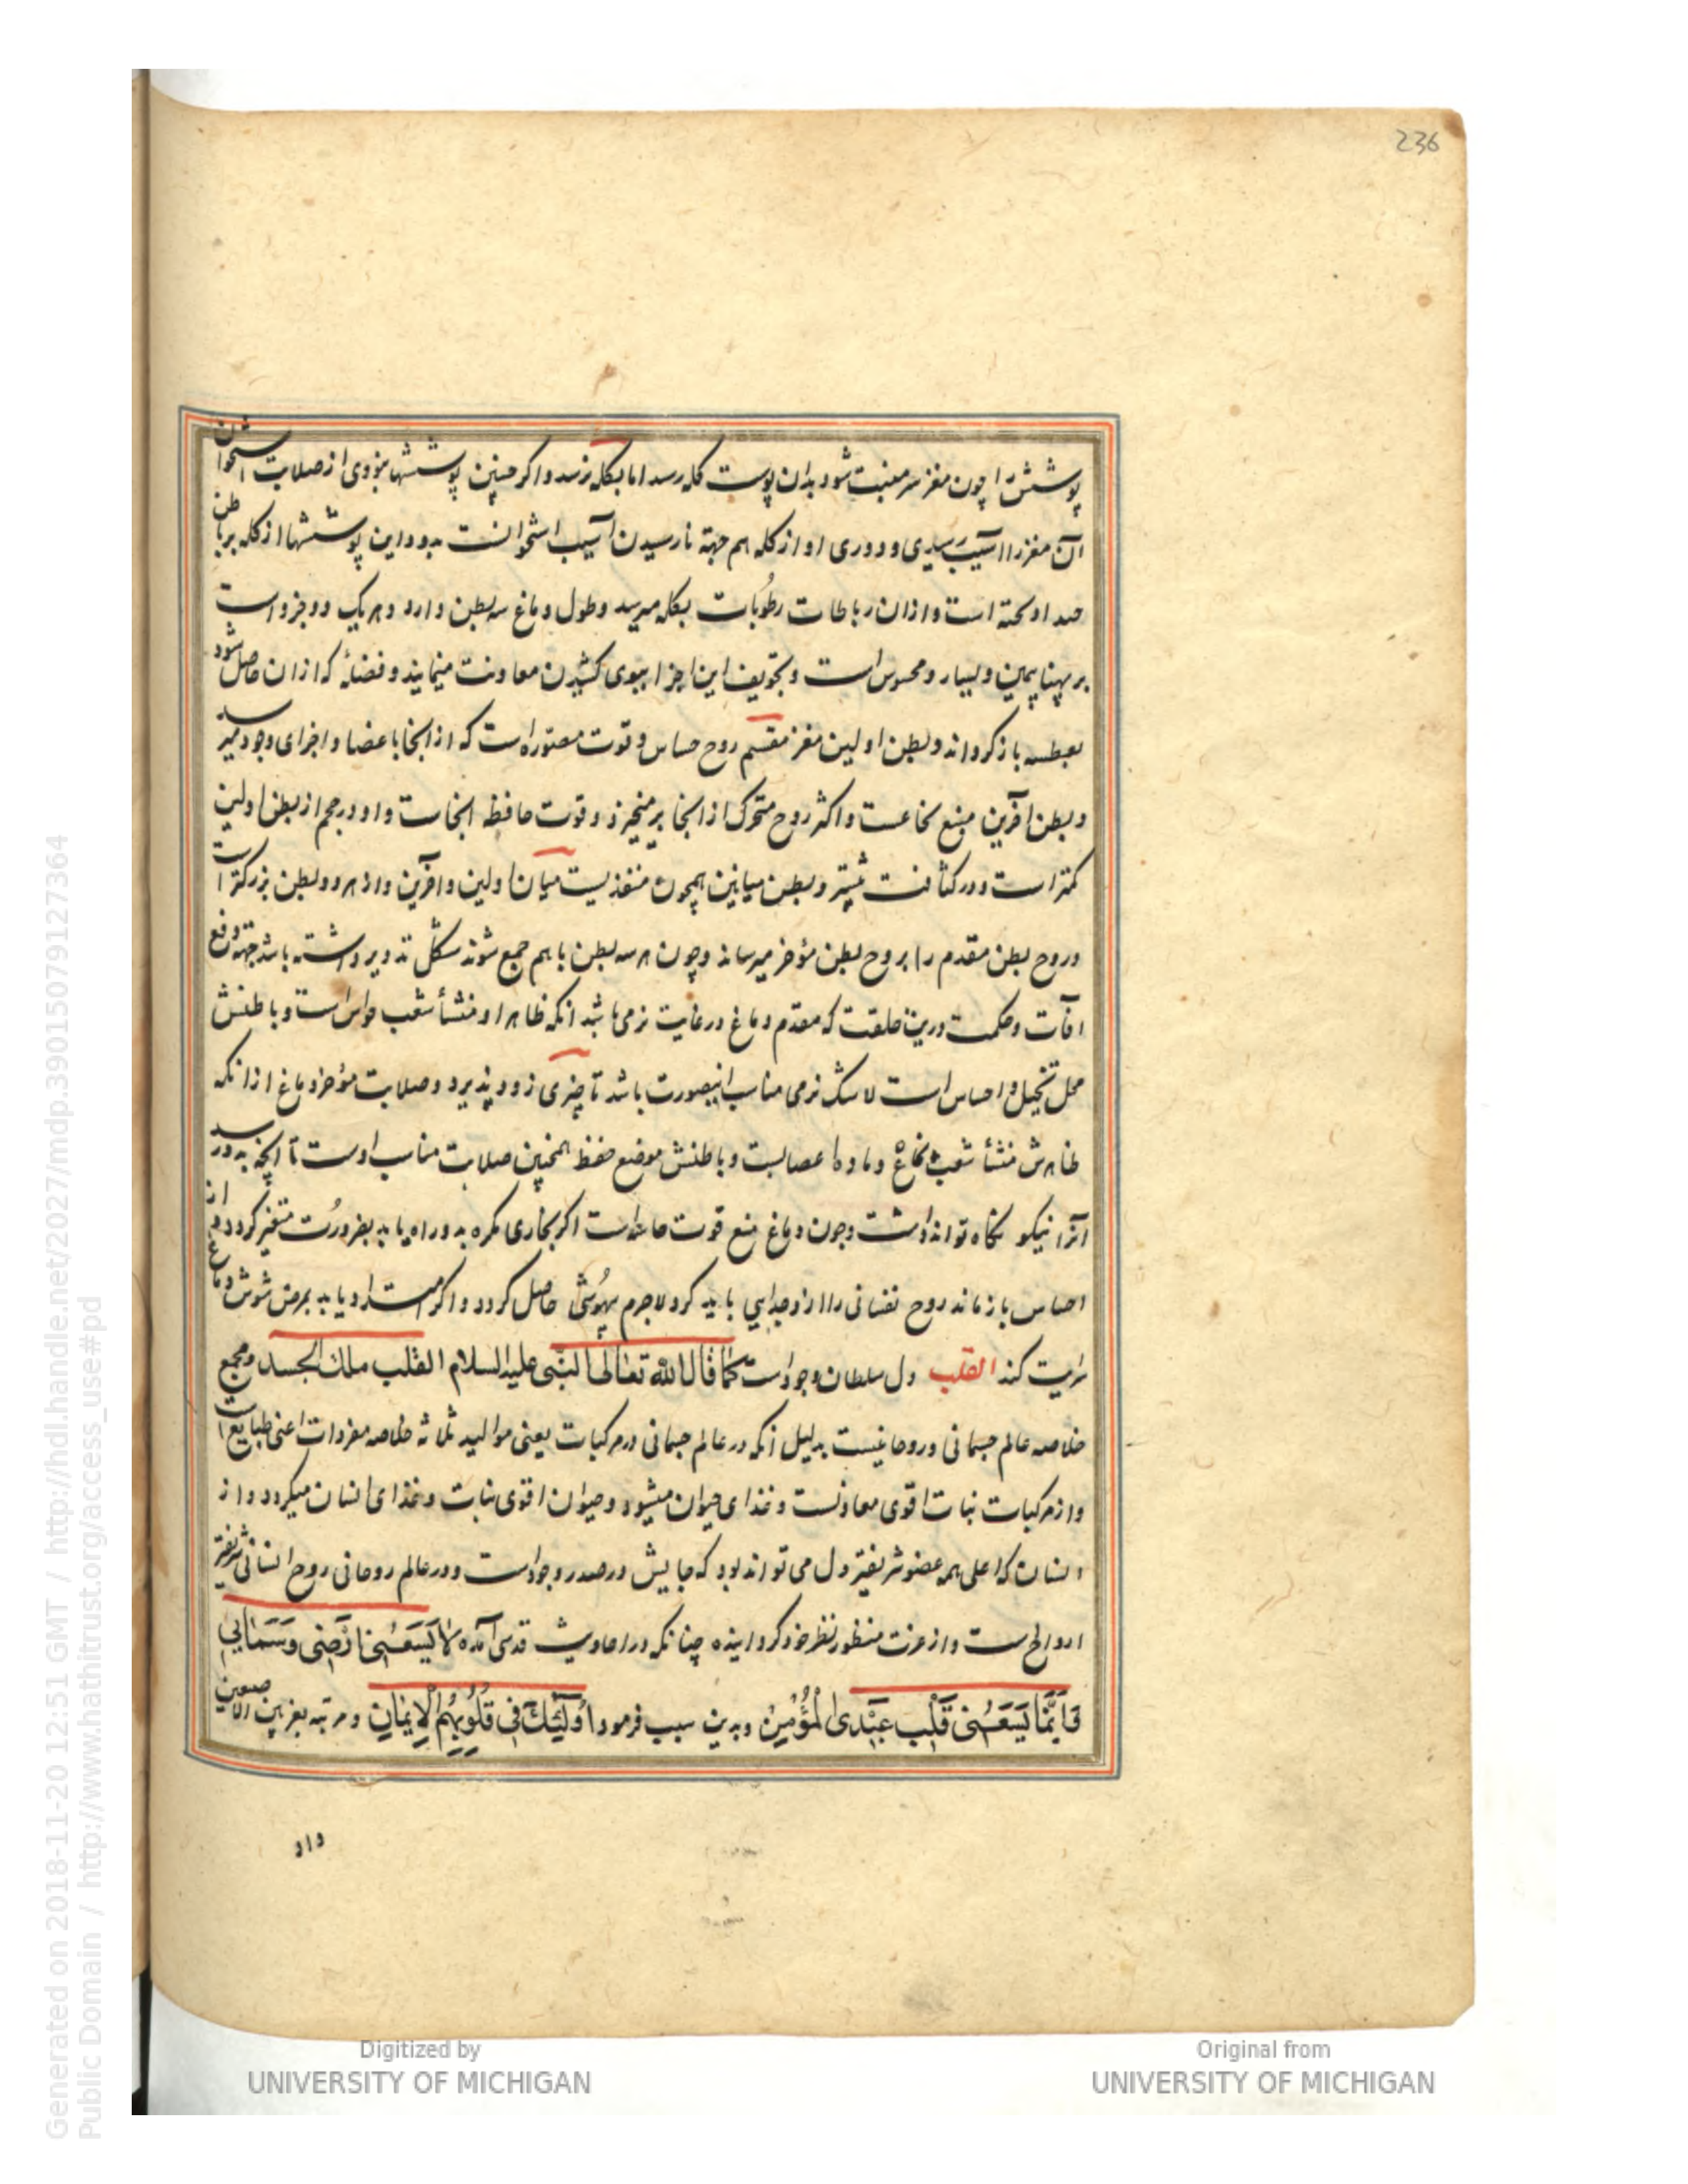 236
پوشش را چون مغز سر منبت شود بدان پوست کله رسد اما بکله نرسد و اکر چنین پوششها بنودی از صلابت استخوان
آن مغز را آسیب رسیدی و دوری او از کله هم جهة نارسیدن آسیب استخوانست بدو و این پوششها از کله برباطن
او است و ازان رباطات رطوبات بکله میرسد و طول دماغ سه بطن دارد و هر یک دو جزو است
بر پهنا یمین و یسار و محسوس است و تجویف این اجزا ببوی کشیدن معاونت مینمایند و فضلهٔ که ازان حاصل شود
بعطسه باز کرداند و بطن اولین مغز مقسم روح حساس و قوت مصوره است که از انجا باعضا و اجزای وجود میرسد
و بطن آخرین منبع نخاعست و اکثر روح متحرک از انجا بر میخیزد و قوت حافظه انجاست و او در حجم از بطن اولین
کمتر است و در کثافت بیشتر و بطن میانین همچون منفذیست میان اولین و آخرین و از هر دو بطن بزرکتر است
و روح بطن مقدم را بروح بطن مؤخر میرساند و چون هر سه بطن با هم جمع شوند شکل تدویر داشته باشد جهة دفع
افات و حکمت درین خلقت که مقدم دماغ در غایت نرمی باشد انکه ظاهر او منشأ شعب حواس است و باطنش
محل تخیل و احساس است لاشک نرمی مناسب اینصورت باشد تا چیزی زود پذیرد و صلابت مؤخر دماغ از انکه
ظاهرش منشأ شعب نخاع و ماده اعصابست و باطنش موضع حفظ همچنین صلابت مناسب اوست تا انچه بدو رسد
آنرا نیکو نکاه تواند داشت و چون دماغ منبع قوت حاسه است اکر بخاری مکره بدو راه یابد بضرورت متغیر کردد و از
احساس باز ماند روح نفسانی را از و جدایی باید کرد لاجرم بیهوشی حاصل کردد و اکر یابد بمرض شوش دماغ
سرایت کند القلب دل سلطان وجودست کما قال الله تعالی النبی علیه السلام القلب ملک الجسد و مجمع
خلاصه عالم جسمانی و روحانیست بدلیل انکه در عالم جسمانی در مرکبات یعنی موالید ثلاثه خلاصه مفردات اعنی طبایع است
و از مرکبات نبات اقوی معادنست و غذای حیوان میشود و حیوان اقوی نبات و غذای انسان میکردد و از
انسان که اعلی همه عضو شریفتر دل می تواند بود که جایش در صدر وجودست و در عالم روحانی روح انسانی شریفتر
ارواح ست و از عزت منظور نظر خود کردانیده چنانکه در احادیث قدسی آمده لا یَسَعُنی اَرْضی وَ سَمائی
فَاِنَّما یَسَعُنی قَلْبُ عَبْدی الْمُؤْمِنِ و بدین سبب فرمود اُولٰئِکَ فی قُلُوبِهِمُ الْاِیمانِ و مرتبه بین الاصبعین
داد
Generated on 2018-11-20 12:51 GMT / http://hdl.handle.net/2027/mdp.39015079127364
Public Domain / http://www.hathitrust.org/access_use#pd
Digitized by
UNIVERSITY OF MICHIGAN
Original from
UNIVERSITY OF MICHIGAN